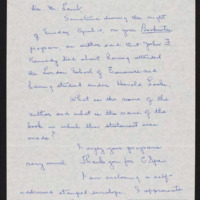 Dear Mr. Lamb:
Sometime during the night
of Sunday April 10, on your Booknotes
program, an author said that John F.
Kennedy lied about having attended
the London School of Economics and
having studied under Harold Laski.
What is the name of the
author and what is the name of the
book in which this statement was
made?
I enjoy your programs
very much. Thank you for C-Span.
I am enclosing a self-
addressed stamped envelope. I appreciate